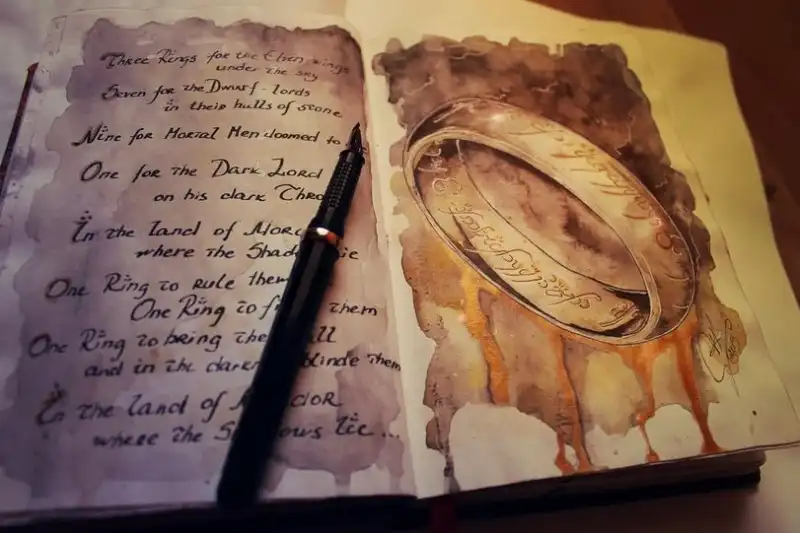 Three Rings for the Elven kings
under the sky
Seven for the Dwarf-lords
in their halls of stone
Nine for Mortal Men doomed to
One for the Dark Lord
on his dark Thro
In the land of Mor
where the Shad lie
One Ring to rule them
One Ring to f them
One Ring to bring the all
and in the dark binde them
In the land of M dor
where the S ows lie...